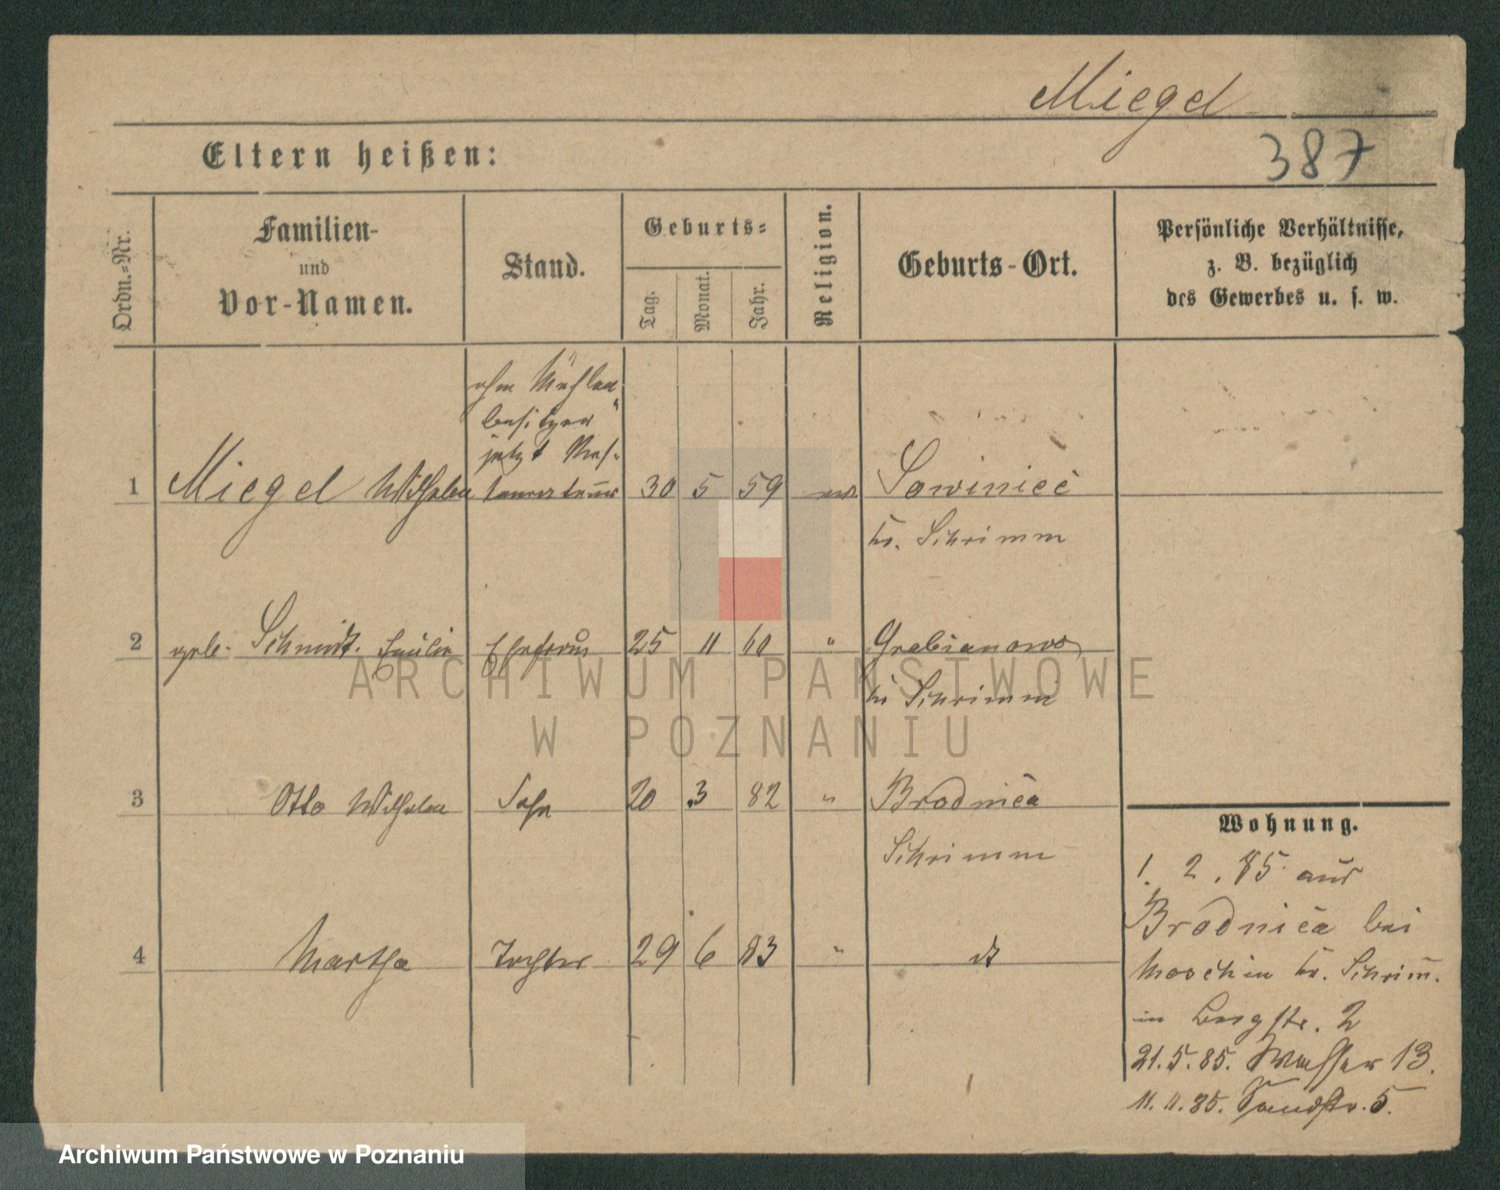 Miegel
387
Eltern heißen:
Ordn.-Nr.
Familien-
und
Vor-Namen.
Stand.
Geburts-
Tag.
Monat.
Jahr.
Religion.
Geburts-Ort.
Persönliche Verhältnisse,
z. B. bezüglich
des Gewerbes u. s. w.
Mühlen
besitzer
jetzt Res-
taurateur
1 Miegel Wilhelm 30 5 59 ev. Sowiniec
Kr. Schrimm
2 geb. Schmidt Emilie Ehefrau 25 11 60 " Grabianowo
Kr Schrimm
3 Otto Wilhelm Sohn 20 3 82 " Brodnica
Schrimm
4 Martha Tochter 29 6 83 " dt
Wohnung.
1. 2. 85 aus
Brodnica bei
Moschin Kr. Schrim̅.
in Bergstr. 2
21.5.85. Wasser 13.
11.11.85. Sandstr. 5.
ARCHIWUM PAŃSTWOWE
W POZNANIU
Archiwum Państwowe w Poznaniu